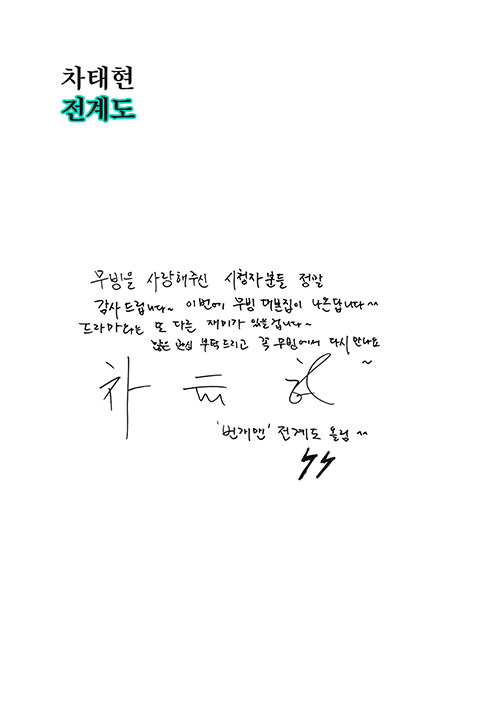 차태현
전계도
무빙을 사랑해주신 시청자분들 정말
감사드립니다~ 이번에 무빙 대본집이 나온답니다^^
드라마와는 또 다른 재미가 있을겁니다~
많은 관심 부탁드리고 꼭 무빙에서 다시 만나요
~
차 태 현
'번개맨' 전계도 올림 ^^